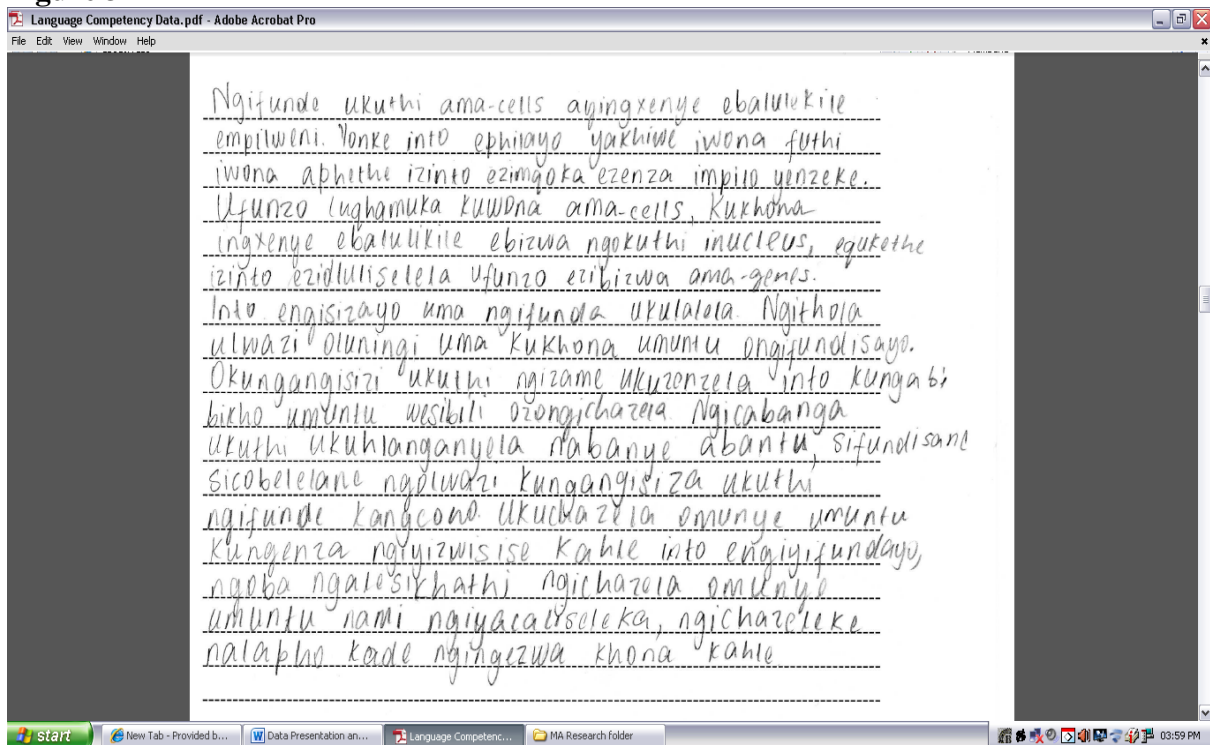 Language Competency Data.pdf - Adobe Acrobat Pro
File Edit View Window Help
Ngifunde ukuthi ama-cells ayingxenye ebalulekile
empilweni. Yonke into ephilayo yakhiwe iwona futhi
iwona aphethe izinto ezimqoka ezenza impilo yenzeke.
Ufunzo lughamuka kuwona ama-cells, Kukhona
ingxenye ebalulikile ebizwa ngokuthi inucleus, equkethe
izinto ezidluliselela ufunzo ezibizwa ama-genes.
Into engisizayo uma ngifunda ukulalela. Ngithola
ulwazi oluningi uma kukhona umuntu ongifundisayo.
Okungangisizi ukuthi ngizame ukuzenzela into kungabi
bikho umuntu wesibili ozongichazela Ngicabanga
ukuthi ukuhlanganyela nabanye abantu, sifundisane
sicobelelane ngolwazi kungangisiza ukuthi
ngifunde kangcono. Ukuchazela omunye umuntu
kungenza ngiyizwisise kahle into engiyifundayo,
ngoba ngalesikhathi ngichazela omunye
umuntu nami ngiyacaciseleka, ngichazeleke
nalapho kade ngingezwa khona kahle
start
New Tab - Provided b...
Data Presentation an...
Language Competenc...
MA Research folder
03:59 PM